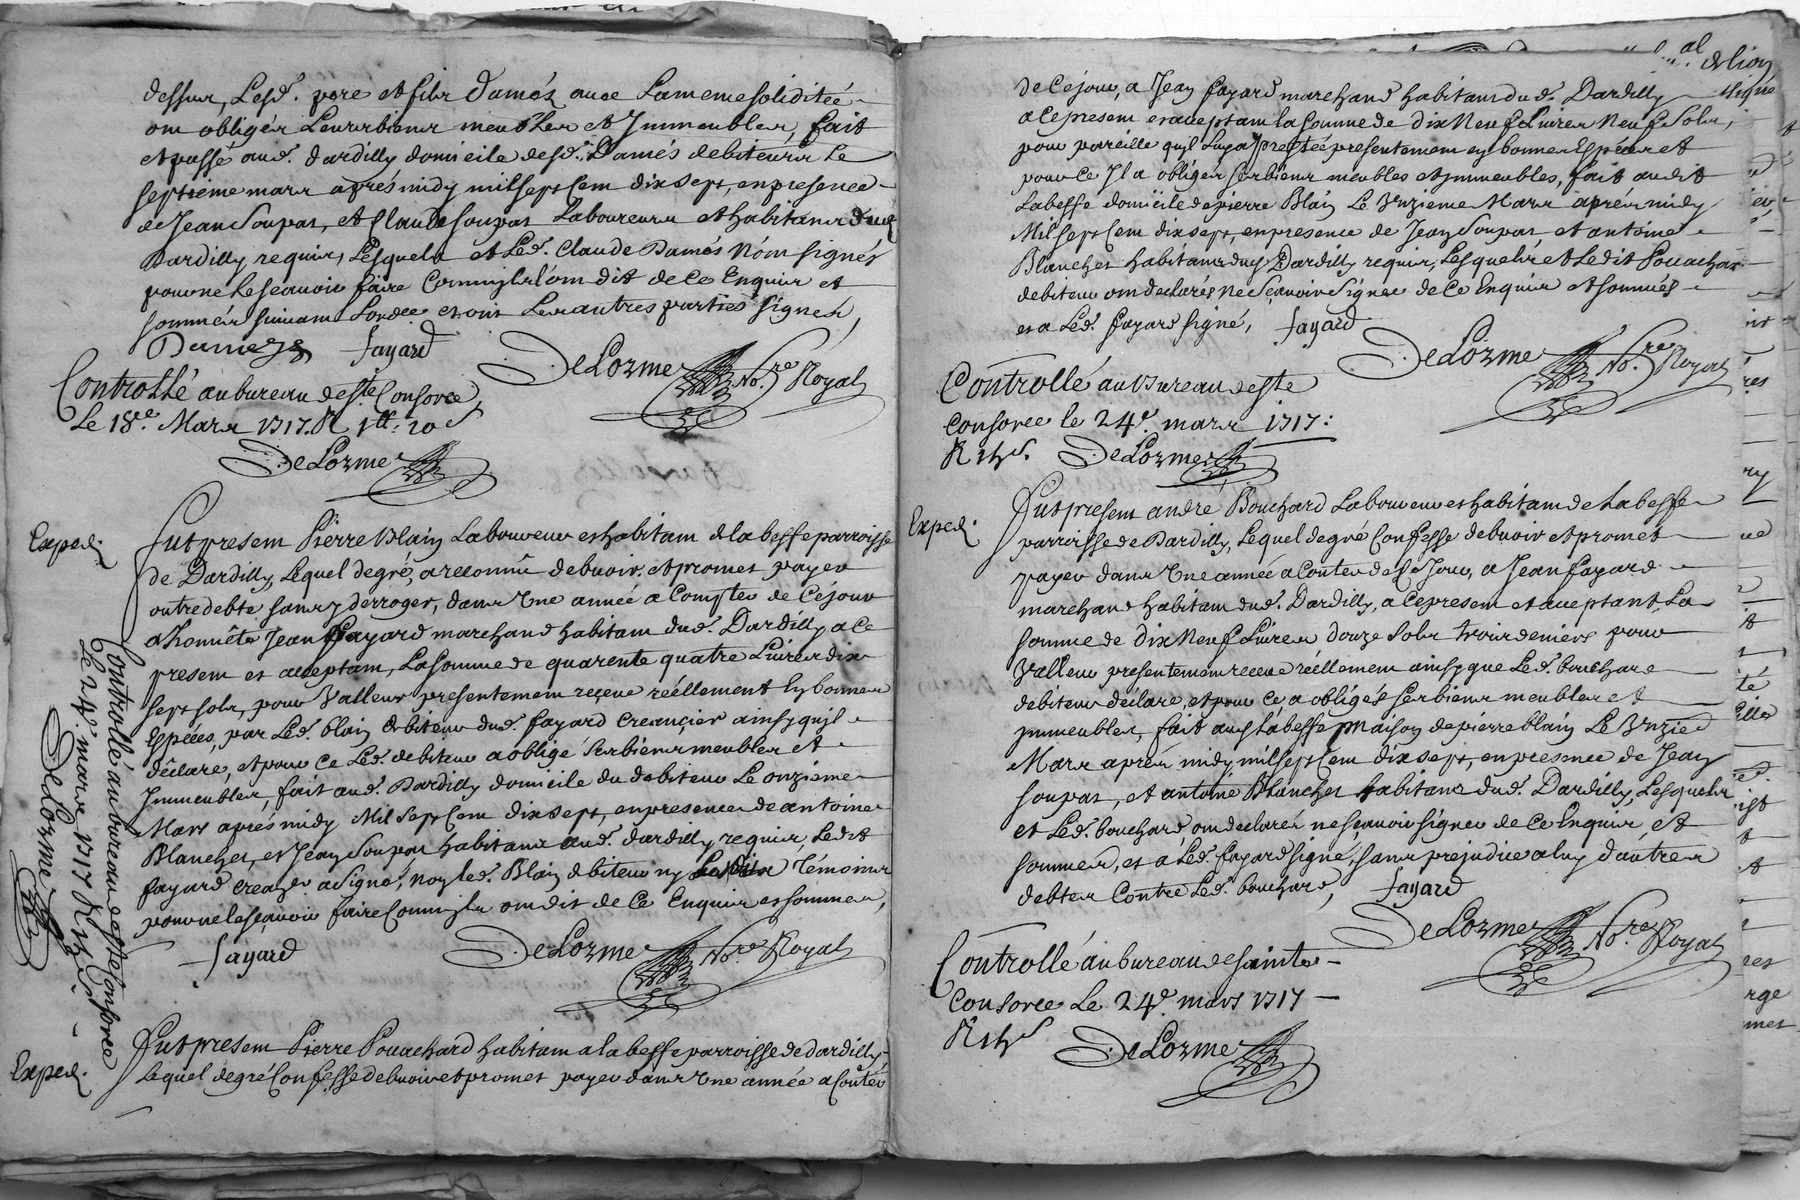 dessus, Lesd. pere et fils Damés avec Lamemesoliditée
ont obligés Leurs biens meubles et Immeubles, fait
et passé aud. dardilly domicile desd. Damés debiteurs Le
septième mars après midy mil sept Cent dix sept, en presence
de Jean Soupat, et Claude Soupat Laboureurs et habitants dud
Dardilly requis, Lesquels et Led. Claude Damés Nont signés
pour ne Le sçavoir faire Comme ils ont dit de Ce Enquis et
sommés suivant Lordce et ont Les autres parties signés,
Damez fayard DeLorme No.re Royal
Controllé au bureau de ste Consorce
Le 18e. Mars 1717. R 1ll: 10 s
DeLorme
Exped.
fut present Pierre Blain Laboureur et habitant de la beffe parroisse
de Dardilly, Lequel de gré, a reconnû debvoir et promet payer
outre debte sans y derroger, dans Une année a Compter de Cejour
a honnête Jean fayard marchand habitant dud. Dardilly a Ce
present et acceptant, La somme de quarente quatre Livres dix
sept sols, pour Valleur presentement reçeue réellement En bonnes
Especes, par Led. blain debiteur dud. fayard Creançier ainsy quil
déclare, et pour Ce Led. debiteur a obligé ses biens meubles et
Immeubles, fait aud. Dardilly domicile du debiteur Le onzième
Mars après midy Mil sept Cent dix sept, en presence de antoine
Blanchet, et Jean Soupat habitants aud. dardilly requis, Ledit
fayard Creancier a signé, non led. Blain debiteur ny Lesdits Témoins
pour ne le sçavoir faire Comme ils ont dit de Ce Enquis et sommés,
fayard DeLorme No.re Royal
Controllé au bureau de ste Consorce
Le 24e. mars 1717 R 12 s.
DeLorme
Exped.
fut present Pierre Pouachard habitant a la beffe parroisse de dardilly,
Lequel de gré Confesse debvoir et promet payer dans Une année a Conter
de Cejour, a Jean fayard marchand habitant dud. Dardilly
a Ce present et acceptant la somme de dix Neuf Livres Neuf Sols,
pour pareille quil Luy a prestée presentement en bonnes Espèces et
pour Ce Il a obliger ses biens meubles et immeubles, fait audit
Labeffe domicile de pierre Blain Le Unzieme Mars après midy
Mil sept Cent dix sept, en presence de Jean Soupat, et antoine
Blanchet habitants dud Dardilly requis, Lesquels et Ledit Pouachar
debiteur ont declarés ne sçavoir signer de Ce Enquis et sommés
et a Led. fayard signé, fayard
DeLorme No.re Royal
Controllé au Bureau de ste
Consorce le 24e. mars 1717:
R 12 s. DeLorme
Exped.
fut present andré Bouchard Laboureur et habitant de Labeffe
parroisse de Dardilly, Lequel de gré Confesse debvoir et promet
payer dans Une année a Conter de Ce Jour, a Jean fayard
marchand habitant dud. Dardilly, a Ce present et acceptant, La
somme de dix Neuf Livres douze Sols trois deniers pour
Valleur presentement receue réellement ainsy que Led. bouchard
debiteur déclare, et pour Ce a obligés ses biens meubles et
immeubles, fait aud Labeffe Maison de pierre blain Le Unzie
Mars après midy mil sept Cent dix sept, en presence de Jean
soupat, et antoine Blanchet habitants dud. Dardilly, Lesquels
et Led. bouchard, ont declarés ne sçavoir signer de Ce Enquis, et
sommés, et a Led. fayard signé, sans prejudice a luy d'autres
debtes Contre Led. bouchard, fayard
DeLorme No.re Royal
Controllé au bureau de sainte
Consorce Le 24e. mars 1717
R 12 s
DeLorme